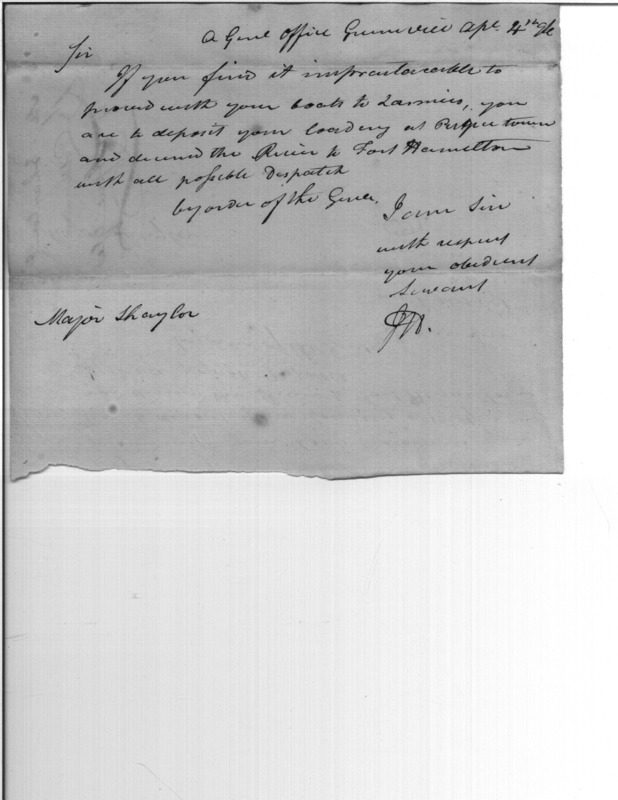 A Genl Office Greeneville Apl 4th 96
Sir
If you find it impracticable to
proceed with your boats to Laramies, you
are to deposit your loading at Piqua town
and descend the River to Fort Hamilton
with all possible Despatch
by order of the Genel.
I am Sir
with respect
your obedient
Servant
Major Shaylor